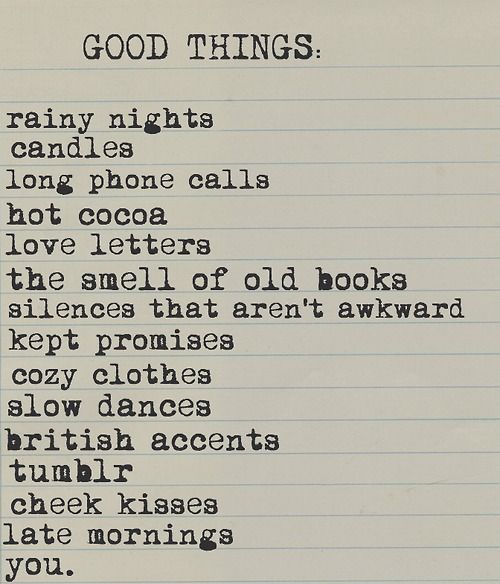 GOOD THINGS:
rainy nights
candles
long phone calls
hot cocoa
love letters
the smell of old books
silences that aren't awkward
kept promises
cozy clothes
slow dances
british accents
tumblr
cheek kisses
late mornings
you.